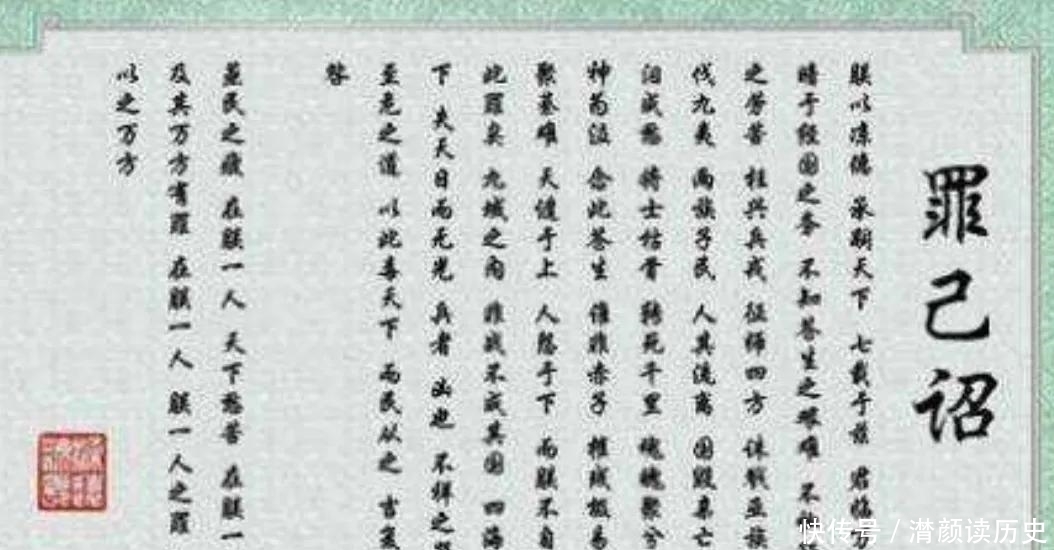 罪己诏
朕以凉德 承嗣天下 七载于兹 君临万
暗于经国之务 不知苍生之艰难 不
之劳苦 枉兴兵戎 征师四方 诛戮亚族
伐九夷 两族子民 人其流离 国毁家亡
汩成愁 将士枯骨 转死千里 魂魄聚兮
神为泣 念此苍生 谁非赤子 摧残
聚基难 天谴于上 人怨于下 而朕不自
此罪矣 九域之内 非战不成其国 四海
下 夫天日而无光 兵者 凶也 不祥之
至危之道 以此毒天下 而民从之 古
咎
蒸民之疲 在朕一人 天下愁苦 在朕一
及其万方有罪 在朕一人 朕一人之罪
以之万方
快传号 / 潸颜读历史